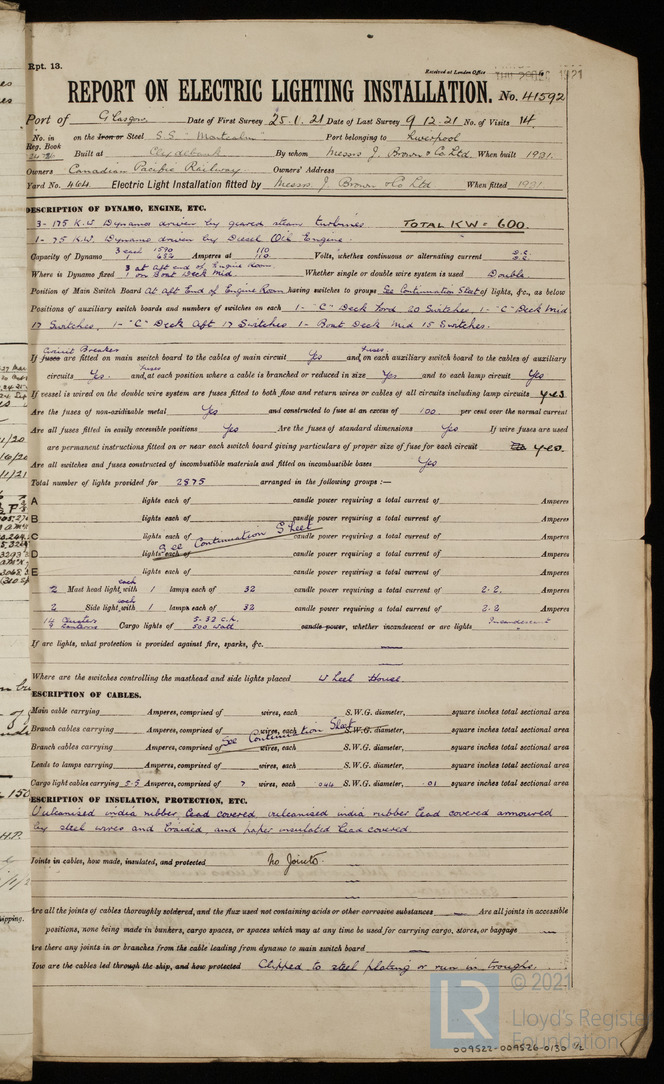 Rpt. 13.
Received at London Office THU 29 DEC 1921
REPORT ON ELECTRIC LIGHTING INSTALLATION. No. 41592
Port of Glasgow Date of First Survey 25.1.21 Date of Last Survey 9.12.21 No. of Visits 14
No. in Reg. Book on the Iron or Steel S.S. "Montcalm" Port belonging to Liverpool
Built at Clydebank By whom Messrs J. Brown & Co Ltd. When built 1921.
Owners Canadian Pacific Railway Owners' Address
Yard No. 464 Electric Light Installation fitted by Messrs. J. Brown & Co Ltd When fitted 1921
DESCRIPTION OF DYNAMO, ENGINE, ETC.
3-175 K.W. Dynamos driven by geared steam turbines TOTAL KW = 600.
1-75 K.W. Dynamo driven by Diesel Oil Engine.
Capacity of Dynamo 3 each 1590 1 682 Amperes at 110 110 Volts, whether continuous or alternating current D.C. D.C.
Where is Dynamo fixed 3 at aft end of Engine Room 1 on Boat Deck Mid Whether single or double wire system is used Double.
Position of Main Switch Board At Aft End of Engine Room having switches to groups See Continuation Sheet of lights, &c., as below
Positions of auxiliary switch boards and numbers of switches on each 1- "C" Deck Ford. 20 Switches, 1- "C" Deck Mid
17 Switches, 1- "C" Deck Aft 17 Switches 1- Boat Deck Mid 15 Switches.
If fuses Circuit Breakers are fitted on main switch board to the cables of main circuit Yes and fuses on each auxiliary switch board to the cables of auxiliary
circuits Yes. and fuses at each position where a cable is branched or reduced in size Yes and to each lamp circuit Yes
If vessel is wired on the double wire system are fuses fitted to both flow and return wires or cables of all circuits including lamp circuits yes.
Are the fuses of non-oxidizable metal Yes and constructed to fuse at an excess of 100 per cent over the normal current
Are all fuses fitted in easily accessible positions Yes Are the fuses of standard dimensions Yes If wire fuses are used
are permanent instructions fitted on or near each switch board giving particulars of proper size of fuse for each circuit yes.
Are all switches and fuses constructed of incombustible materials and fitted on incombustible bases Yes
Total number of lights provided for 2875 arranged in the following groups :—
A lights each of candle power requiring a total current of Amperes
B lights each of candle power requiring a total current of Amperes
C lights each of candle power requiring a total current of Amperes
See Continuation Sheet
D lights each of candle power requiring a total current of Amperes
E lights each of candle power requiring a total current of Amperes
2 Mast head light each with 1 lamps each of 32 candle power requiring a total current of 2.2. Amperes
2 Side light each with 1 lamps each of 32 candle power requiring a total current of 2.2 Amperes
14 Clusters 9 Lanterns Cargo lights of 5-32 c.p. 500 Watt candle power, whether incandescent or arc lights Incandescent
If arc lights, what protection is provided against fire, sparks, &c.
Where are the switches controlling the masthead and side lights placed Wheel House.
DESCRIPTION OF CABLES.
Main cable carrying Amperes, comprised of wires, each S.W.G. diameter, square inches total sectional area
Branch cables carrying Amperes, comprised of wires, each S.W.G. diameter, square inches total sectional area
See Continuation Sheet
Branch cables carrying Amperes, comprised of wires, each S.W.G. diameter, square inches total sectional area
Leads to lamps carrying Amperes, comprised of wires, each S.W.G. diameter, square inches total sectional area
Cargo light cables carrying 5.5 Amperes, comprised of 7 wires, each .044 S.W.G. diameter, .01 square inches total sectional area
DESCRIPTION OF INSULATION, PROTECTION, ETC.
Vulcanised india rubber lead covered, vulcanised india rubber lead covered armoured
by steel wires and braided, and paper insulated lead covered
Joints in cables, how made, insulated, and protected No Joints.
Are all the joints of cables thoroughly soldered, and the flux used not containing acids or other corrosive substances Are all joints in accessible
positions, none being made in bunkers, cargo spaces, or spaces which may at any time be used for carrying cargo, stores, or baggage
Are there any joints in or branches from the cable leading from dynamo to main switch board
How are the cables led through the ship, and how protected Clipped to steel plating or run in troughs.
LR © 2021
Lloyd's Register
Foundation
009522-009526-0130 1/2